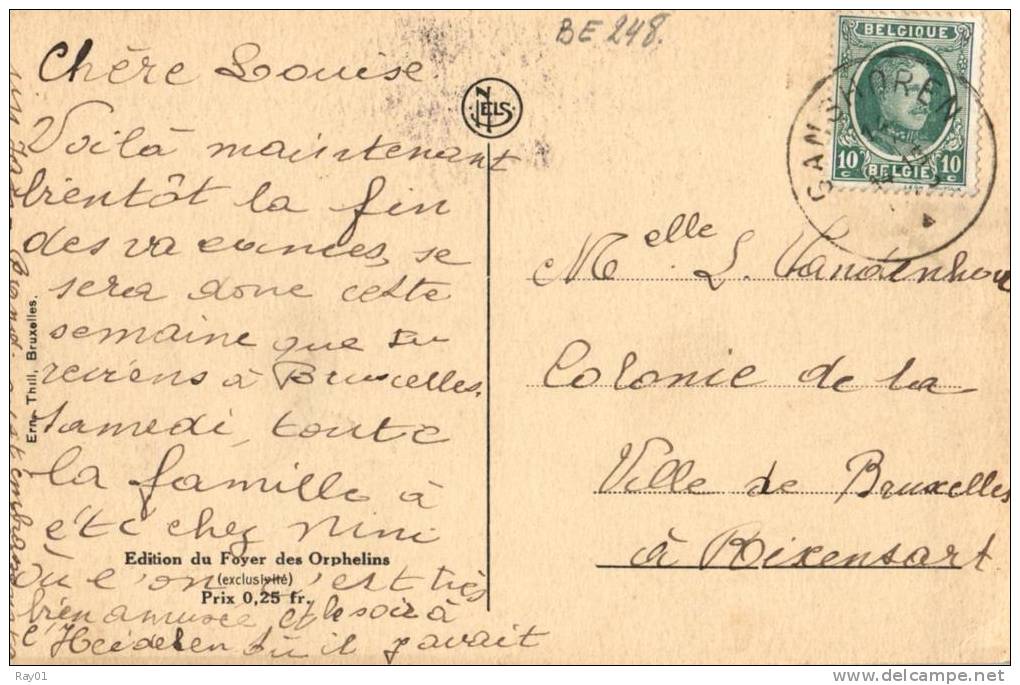 BE 248.
Chère Louise
Voilà maintenant
bientôt la fin
des vacances, se
sera donc cette
semaine que tu
reviens à Bruxcelles.
Samedi, toute
la famille à
été chez Nini
où l'on s'est très
bien amusée et le soir à
l'Heidelen où il y avait
Ern. Thill, Bruxelles.
Edition du Foyer des Orphelins
(exclusivité)
Prix 0,25 fr.
NELS
BELGIQUE
10 c
10 c
BELGIE
GANSHOREN
Melle L. Vandenhou
Colonie de la
Ville de Bruxelles
à Rixensart
Ray01
delcampe.net